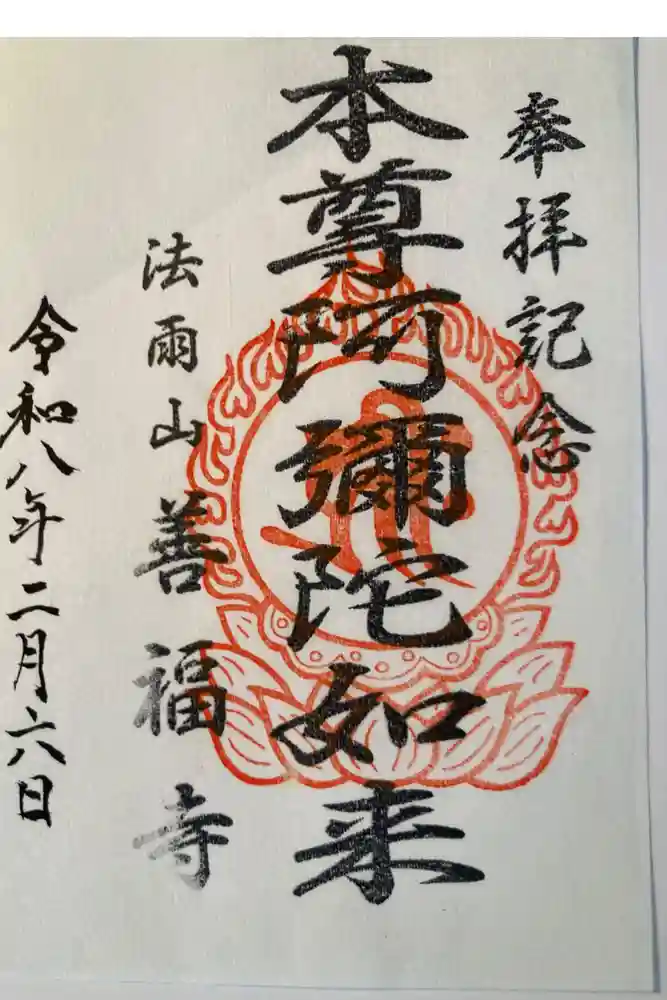 奉拝記念
本尊阿彌陀如来
法雨山善福寺
令和八年二月六日